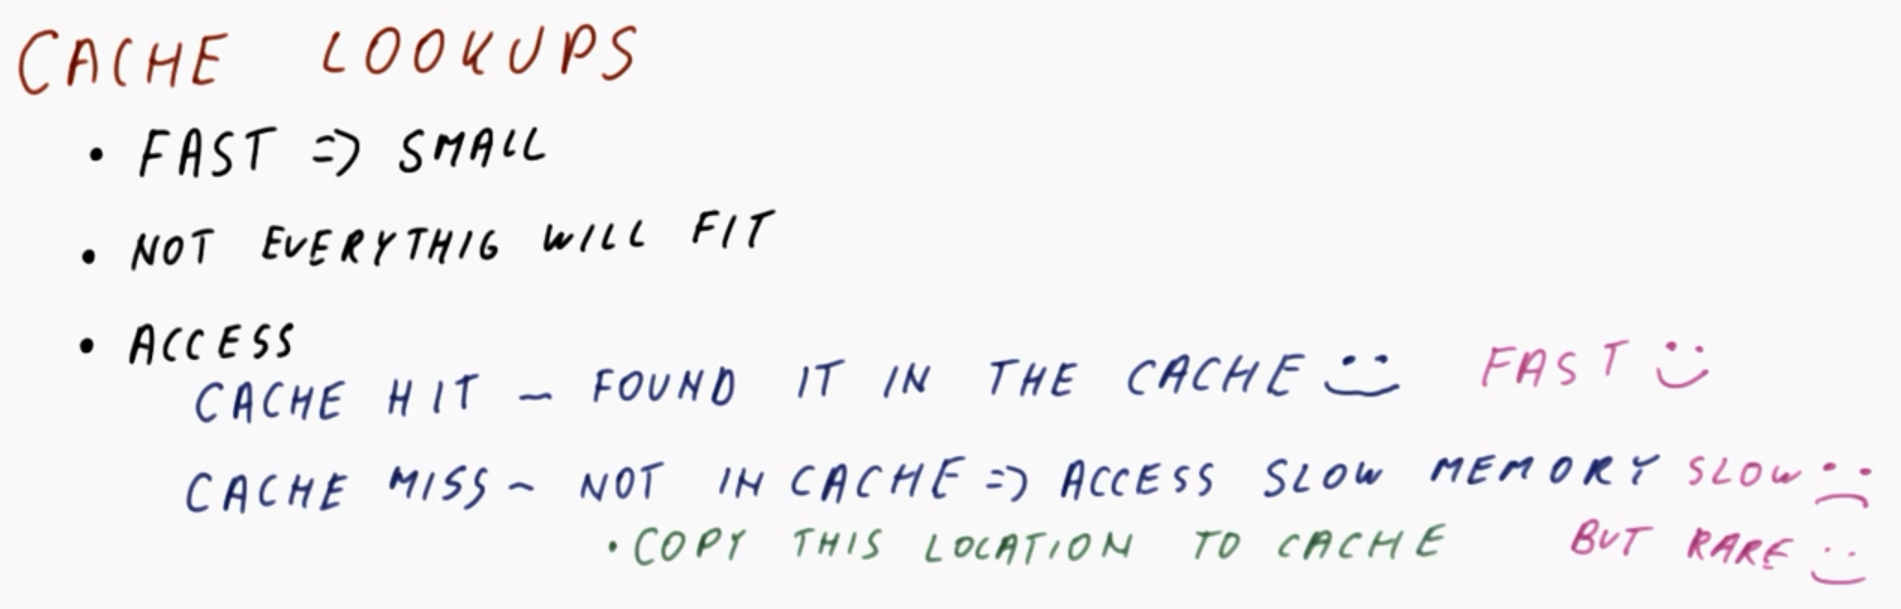 CACHE LOOKUPS
• FAST => SMALL
• NOT EVERYTHIG WILL FIT
• ACCESS
CACHE HIT ~ FOUND IT IN THE CACHE FAST
CACHE MISS ~ NOT IN CACHE => ACCESS SLOW MEMORY SLOW
• COPY THIS LOCATION TO CACHE BUT RARE